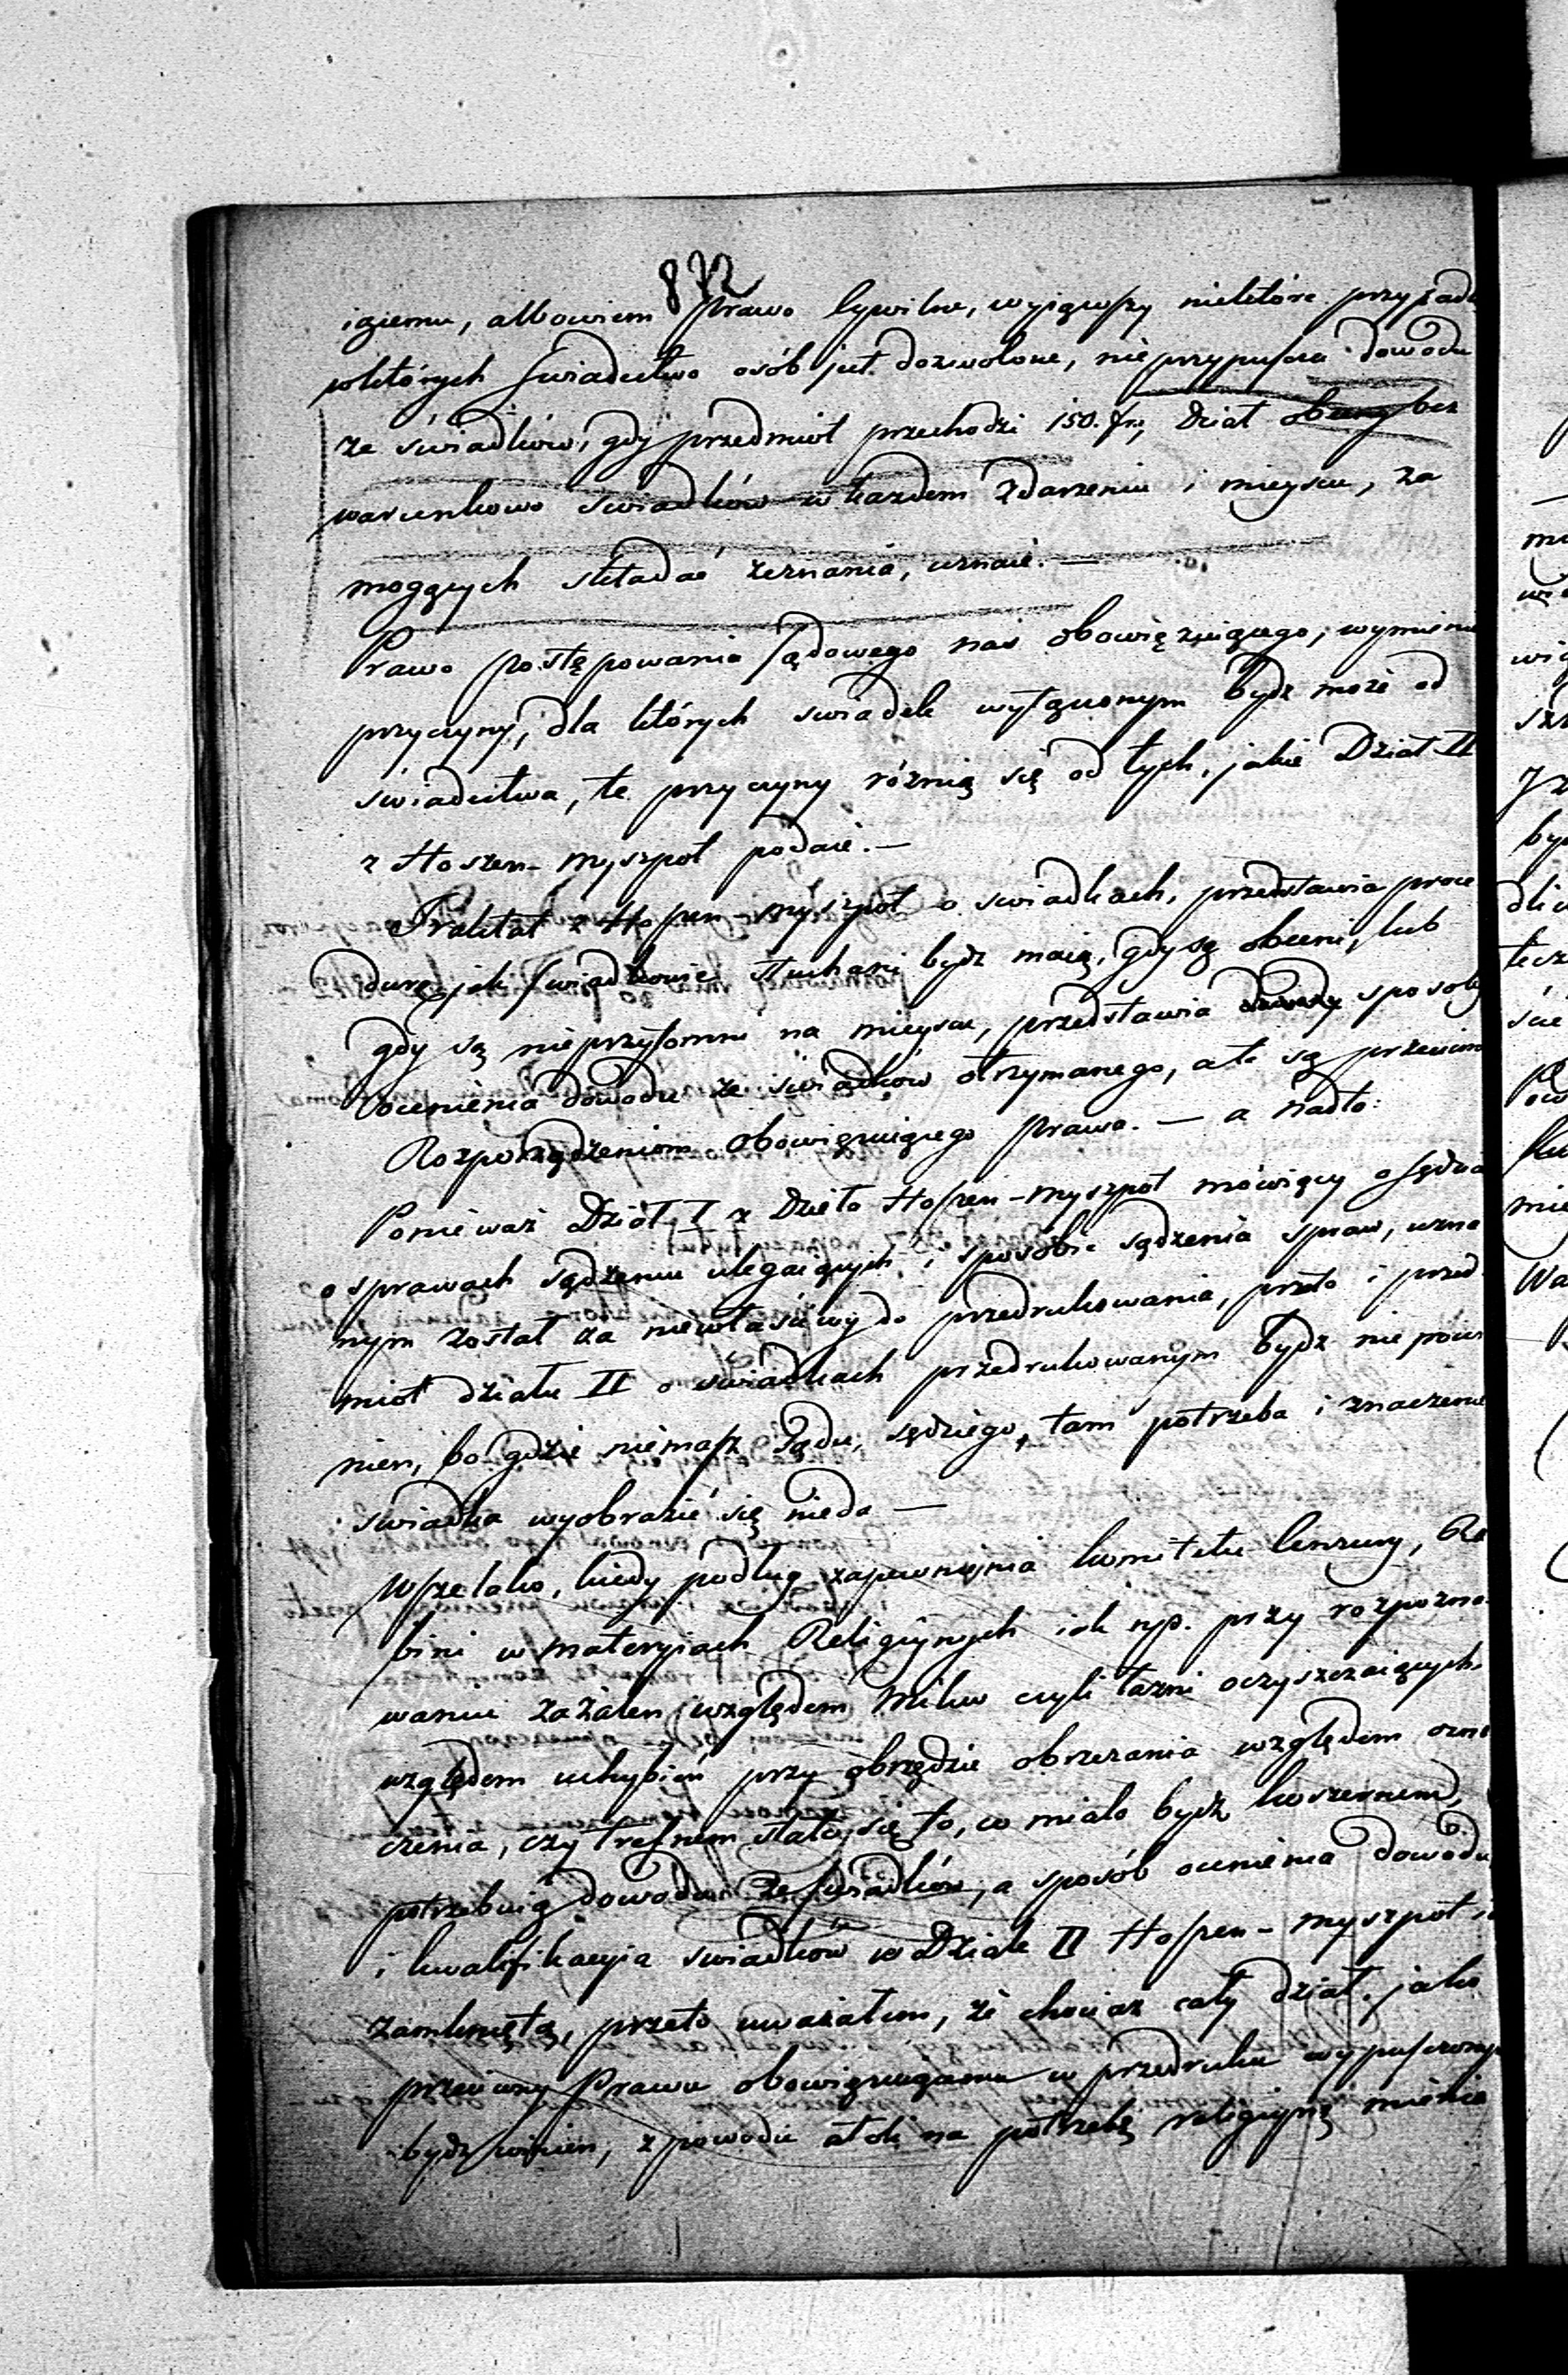 872
iącemu, albowiem Prawo Cywilne, wyjąwszy niektóre przypad
wktórych świadectwo osób jest dozwolone, nieprzypuszcza dowodu
ze świadków, gdy przedmiot przechodzi 150. fr., Dział bez
warunkowo swiadków w każdem zdarzeniu i mieyscu, za
mogących składać zeznania, uznaie. —
Prawo postępowania sądowego nas obowięzuiącego, wymienia
przyczyny, dla których swiadek wyłączonym bydź może od
świadectwa, te przyczyny różnią się od tych, jakie Dział II
z Hoszen-Myszpot podaie. —
Traktat z Hoszen-myszpot o swiadkach, przedstawia proce
durę jak świadkowie słuchani bydź maią, gdy są obecni, lub
gdy są nieprzytomni na mieyscu, przedstawia sposoby
ocenienia dowodu ze świadków otrzymanego, a te są przeciwne
Rozporządzeniom obowięzuiącego prawa. — a nadto:
Ponieważ Dział I z Dzieła Hoszen-Myszpot mówiący o sędzia
o sprawach sądzeniu ulegaiących i sposobie sądzenia spraw, uzna
nym został za niewłaściwy do przedrukowania, przeto i przed
miot działu II o świadkach przedrukowanym bydź nie powi
nien, bo gdzie niemasz Sądu, sędziego, tam potrzeba i znaczenie
świadka wyobrazić się nieda —
Wszelako, kiedy podług zapewnienia komitetu Cenzury, Ra
bini w materyiach Religiynych iak np. przy rozpozna
waniu zażaleń względem Mikw czyli łazni oczyszczaiących,
względem uchybień przy obrzędzie obrzezania względem ozna
czenia, czy trefnem stało się to, co miało bydź koszernem,
potrzebuią dowodu ze świadków, a sposób ocenienia dowodu
i kwalifikacyia swiadków w Dziale II Hoszen-myszpot i
zamknięta, przeto uważałem, że chociaż cały dział jako
przeciwny Prawu obowięzuiącemu w przedruku wypuszczony
bydź winien, z powodu atoli na potrzebę religiyną